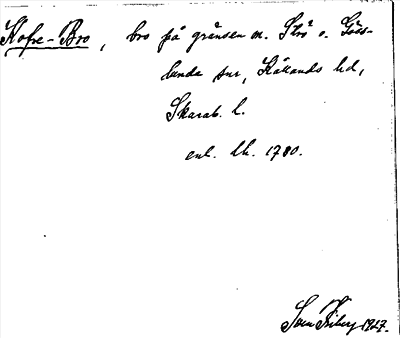 Kofre-Bro, bro på gränsen m. Strö o. Gös-
lunda snr, Kållands hd,
Skarab. l.
enl. lk. 1780.
Sven Friberg 1927.